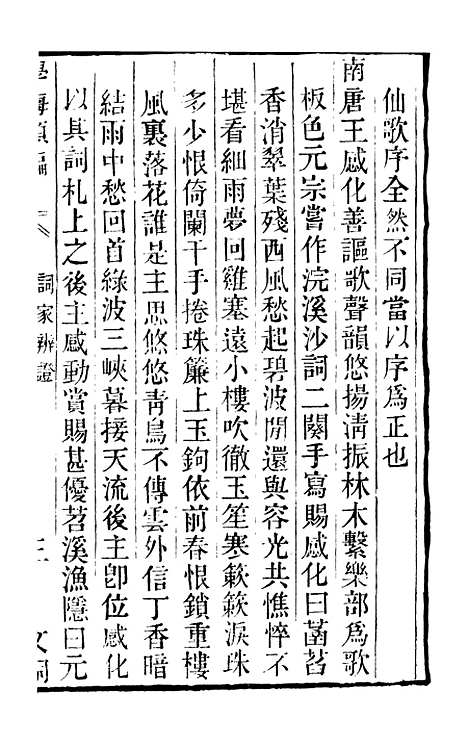 仙歌序全然不同當以序爲正也
南唐王感化善謳歌聲韻悠揚淸振林木繫樂部爲歌
板色元宗嘗作浣溪沙詞二闋手寫賜感化曰菡萏
香消翠葉殘西風愁起碧波閒還與容光共憔悴不
堪看細雨夢回雞塞遠小樓吹徹玉笙寒簌簌淚珠
多少恨倚闌干手捲珠簾上玉鉤依前春恨鎖重樓
風裏落花誰是主思悠悠靑鳥不傳雲外信丁香暗
結雨中愁回首綠波三峽暮接天流後主卽位感化
以其詞札上之後主感動賞賜甚優苕溪漁隱曰元
學海類編
詞家辨證
三